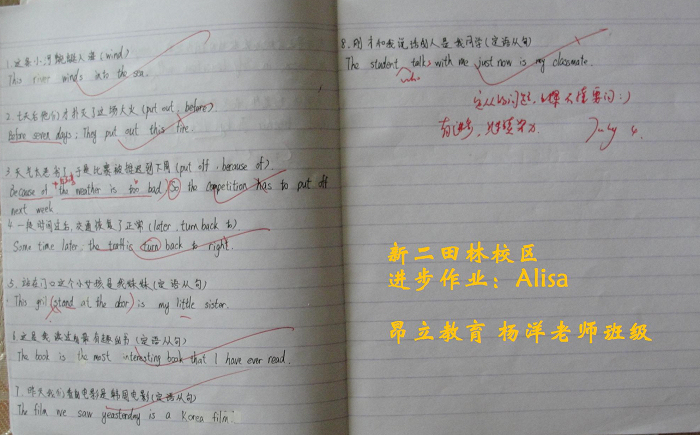 1.这条小河蜿蜒入海 (wind)
This river winds into the sea.
2.七天后他们才扑灭了这场大火 (put out, before)
Before seven days, They put out this fire.
3.天气太恶劣了于是比赛被推迟到下周 (put off, because of)
Because of the weather is too bad, So the competition has to put off
next week
4.一段时间过后,交通恢复了正常 (later, turn back to)
Some time later, the traffic turn back to right.
5.站在门口这个小女孩是我妹妹 (定语从句)
This gril stand at the door is my little sister.
6.这是我读过最有趣的书 (定语从句)
The book is the most interesting book that I have ever read.
7.昨天我们看的电影是韩国电影 (定语从句)
The film we saw yeasterday is a Korea film
8.刚才和我说话的人是我同学 (定语从句)
The student talks with me just now is my classmate.
who
定从的问题,
有进步,继续努力
July 4.
新二田林校区
进步作业：Alisa
昂立教育 杨洋老师班级